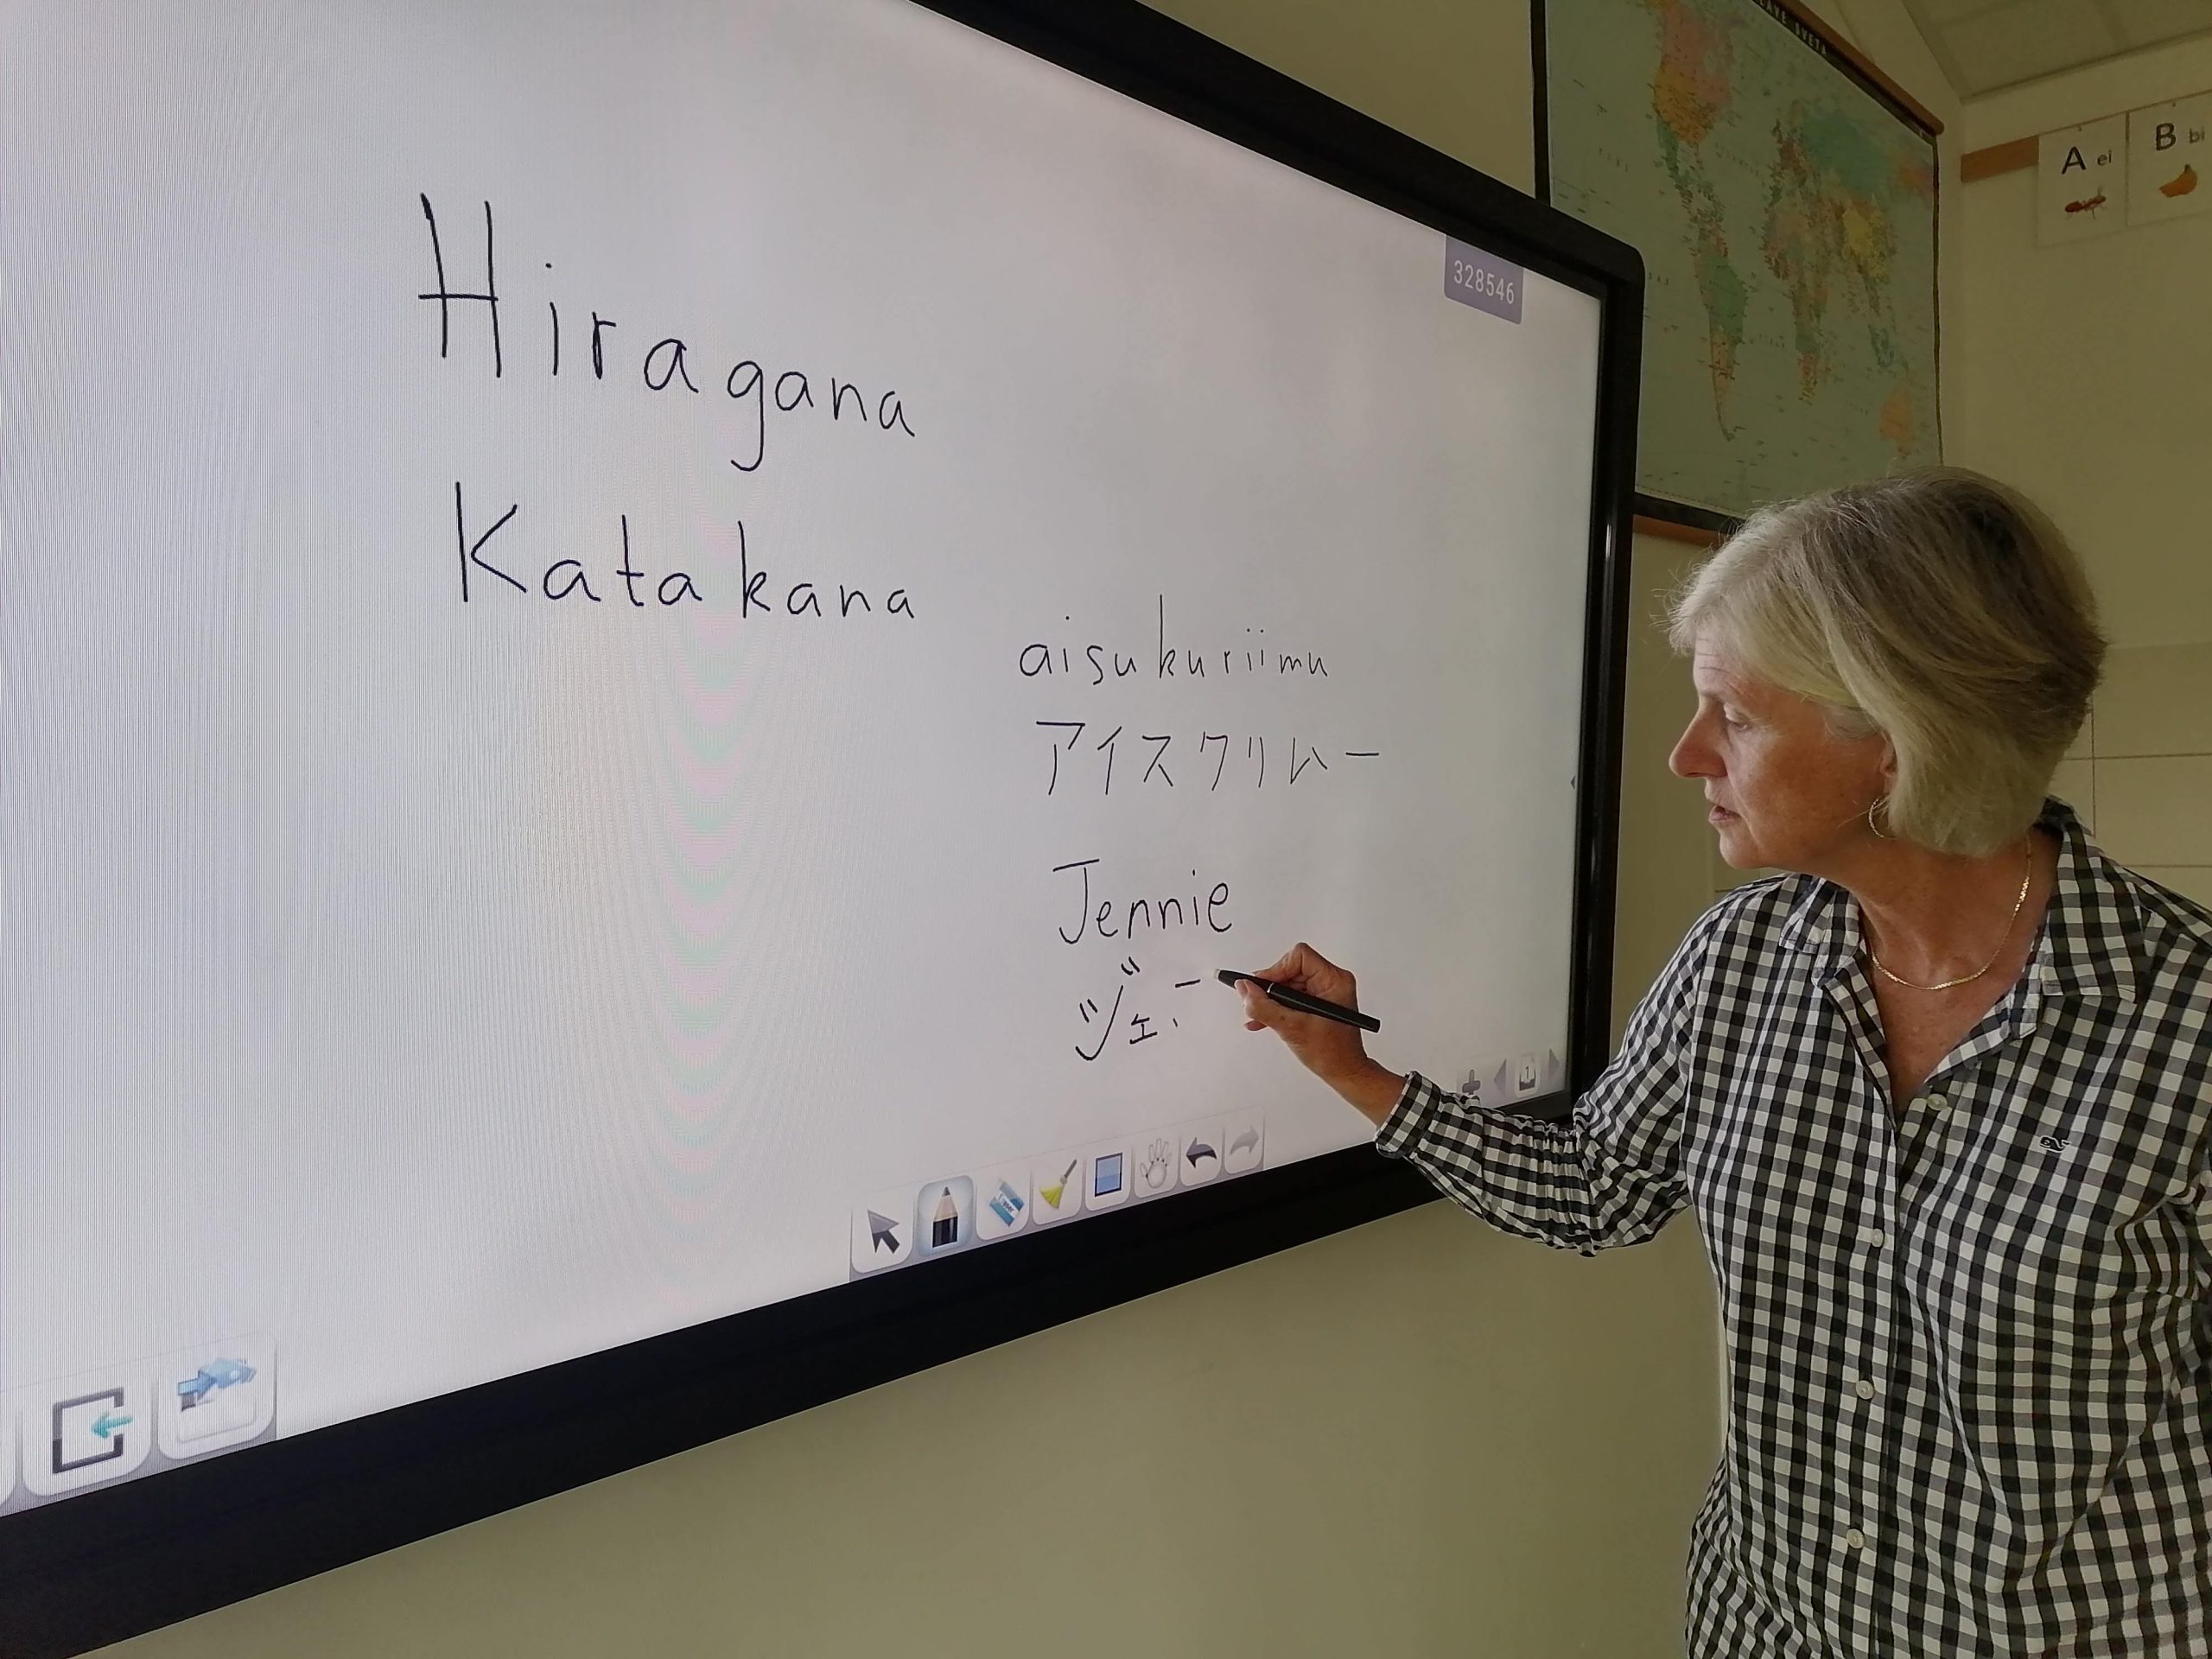 328546
Hiragana
Katakana
aisukuriimu
アイスクリムー
Jennie
ジェニ
A ei
B bi
1